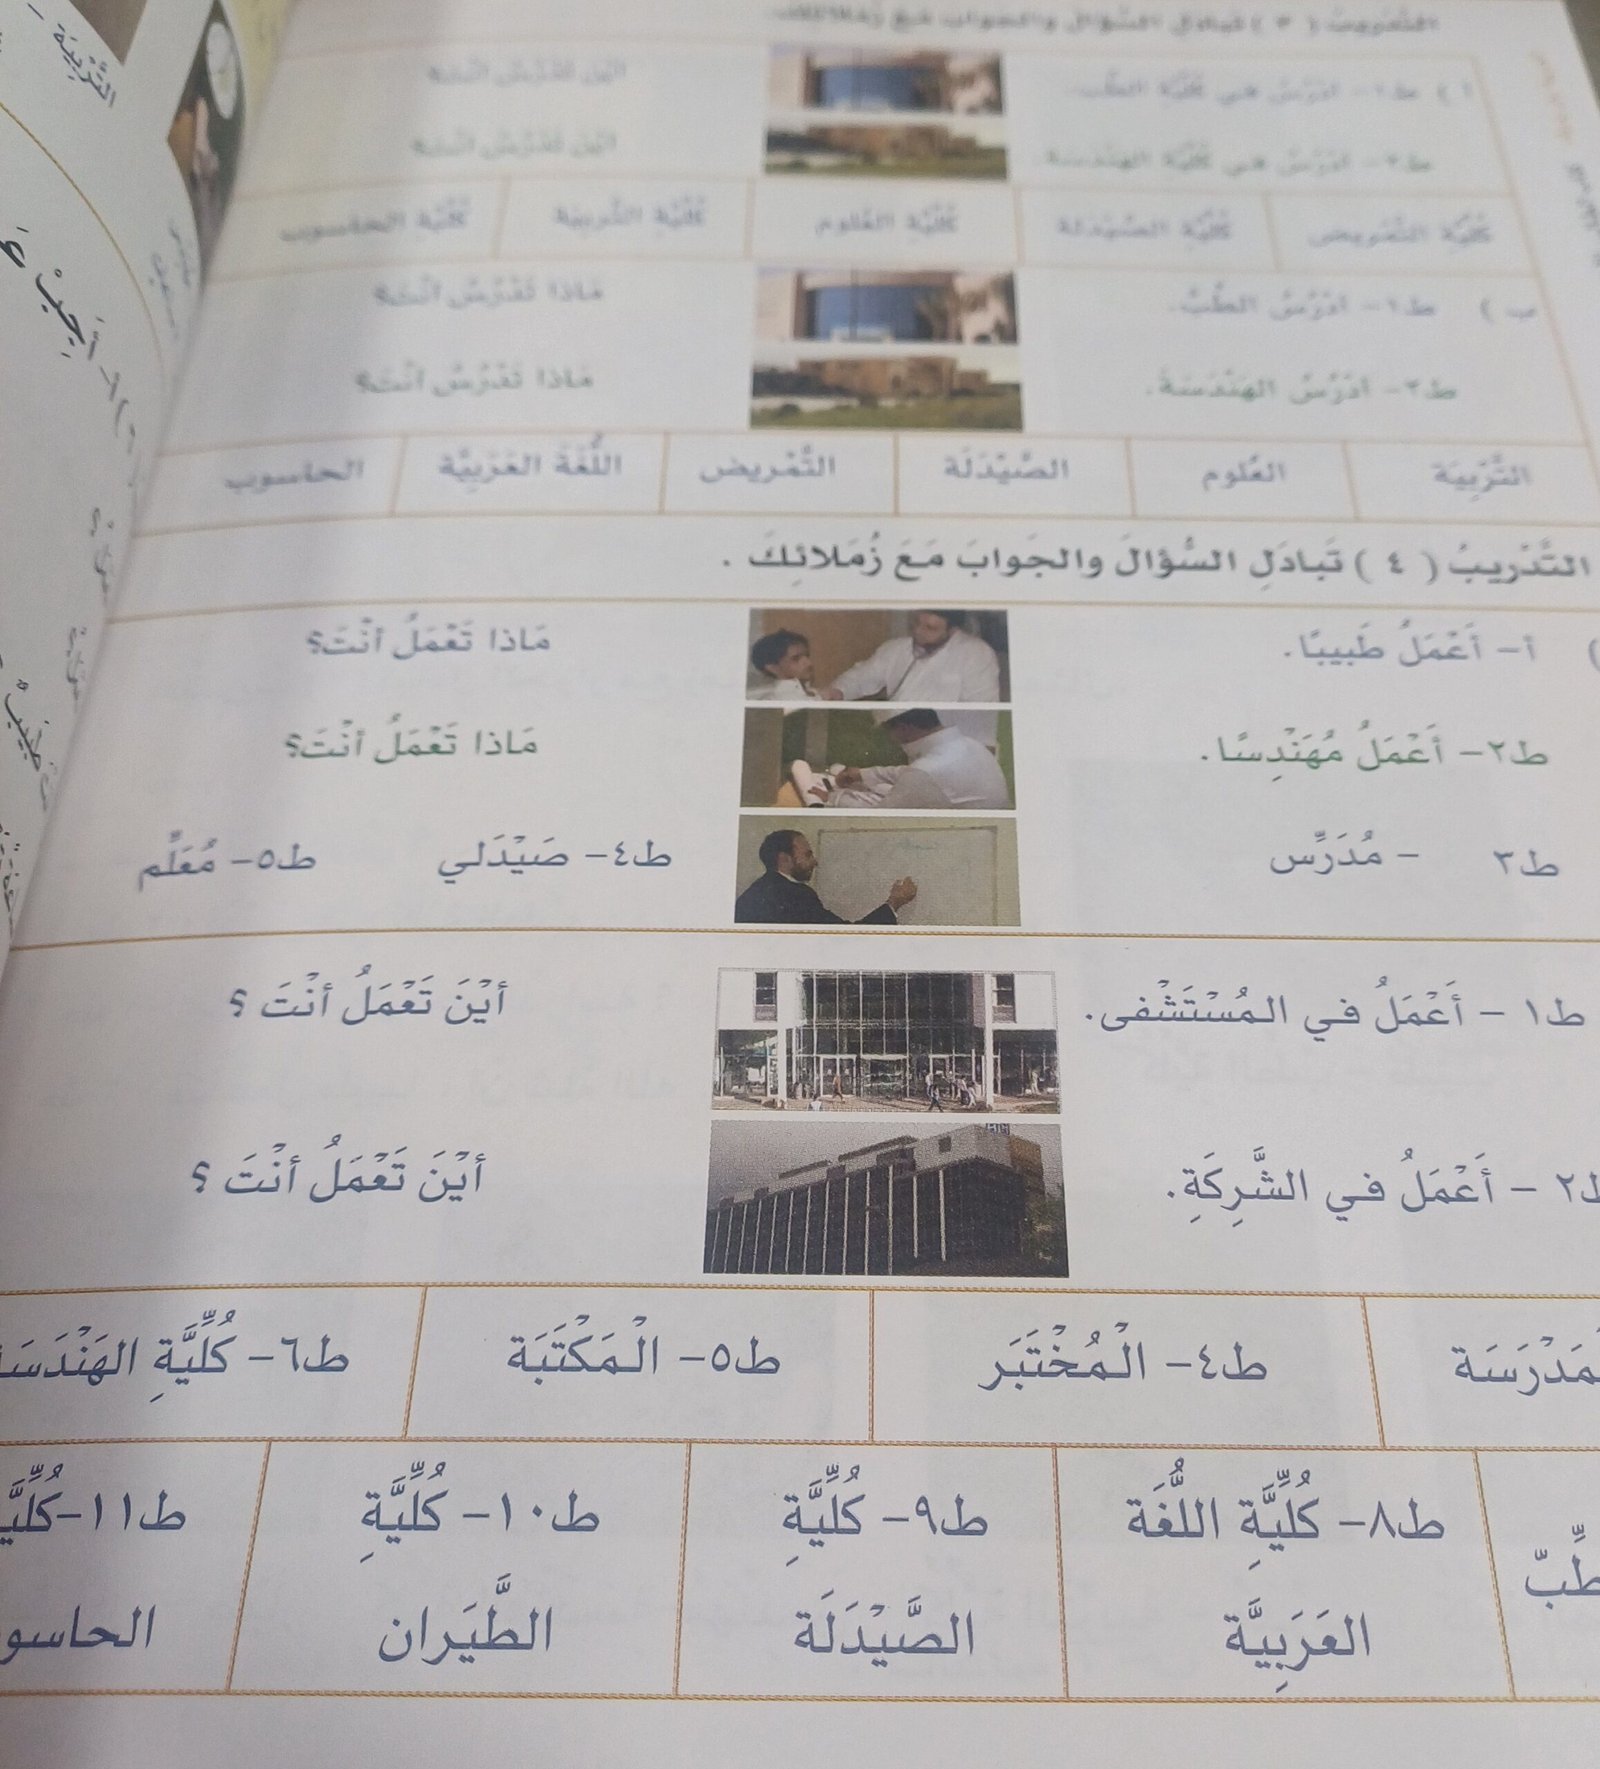 التَّدْريبُ ( ٣ ) تَبادَلِ السُّؤالَ والجَوابَ مَعَ زُمَلائِكَ.
أ ) ط١- أدْرُسُ في كُلِّيَّةِ الطِّبِّ. أيْنَ تَدْرُسُ أنْتَ؟
ط٢- أدْرُسُ في كُلِّيَّةِ الهَنْدَسَةِ. أيْنَ تَدْرُسُ أنْتَ؟
كُلِّيَّة التَّمْريض كُلِّيَّة الصَّيْدَلَة كُلِّيَّة العُلوم كُلِّيَّة التَّربيَة كُلِّيَّة الحاسوب
ب ) ط١- أدْرُسُ الطِّبَّ. مَاذا تَدْرُسُ أنْتَ؟
ط٢- أدْرُسُ الهَنْدَسَةَ. مَاذا تَدْرُسُ أنْتَ؟
التَّرْبِيَة العُلوم الصَّيْدَلَة التَّمْريض اللُّغَة العَرَبِيَّة الحاسوب
التَّدْريبُ ( ٤ ) تَبادَلِ السُّؤالَ والجَوابَ مَعَ زُمَلائِكَ .
) أ- أَعْمَلُ طَبيبًا. مَاذا تَعْمَلُ أنْتَ؟
ط٢- أَعْمَلُ مُهَنْدِسًا. مَاذا تَعْمَلُ أنْتَ؟
ط٣ - مُدَرِّس ط٤- صَيْدَلي ط٥- مُعَلِّم
ط١ - أَعْمَلُ في المُسْتَشْفى. أيْنَ تَعْمَلُ أنْتَ ؟
ط٢ - أَعْمَلُ في الشَّرِكَةِ. أيْنَ تَعْمَلُ أنْتَ ؟
مَدْرَسَة ط٤- الْمُخْتَبَر ط٥- الْمَكْتَبَة ط٦- كُلِّيَّةِ الهَنْدَسَة
طِّبّ ط٨- كُلِّيَّةِ اللُّغَة ط٩- كُلِّيَّةِ ط١٠- كُلِّيَّةِ ط١١-كُلِّيَّ
العَرَبِيَّة الصَّيْدَلَة الطَّيَران الحاسو